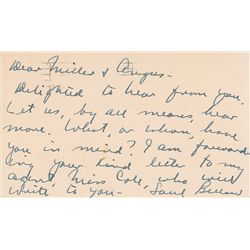 Dear Miller & Angus-
Delighted to hear from you.
Let us, by all means, hear
more. What, or whom, have
you in mind? I am forward-
ing your kind letter to my
agent, Miss Cole, who will
write to you- Saul Bellow